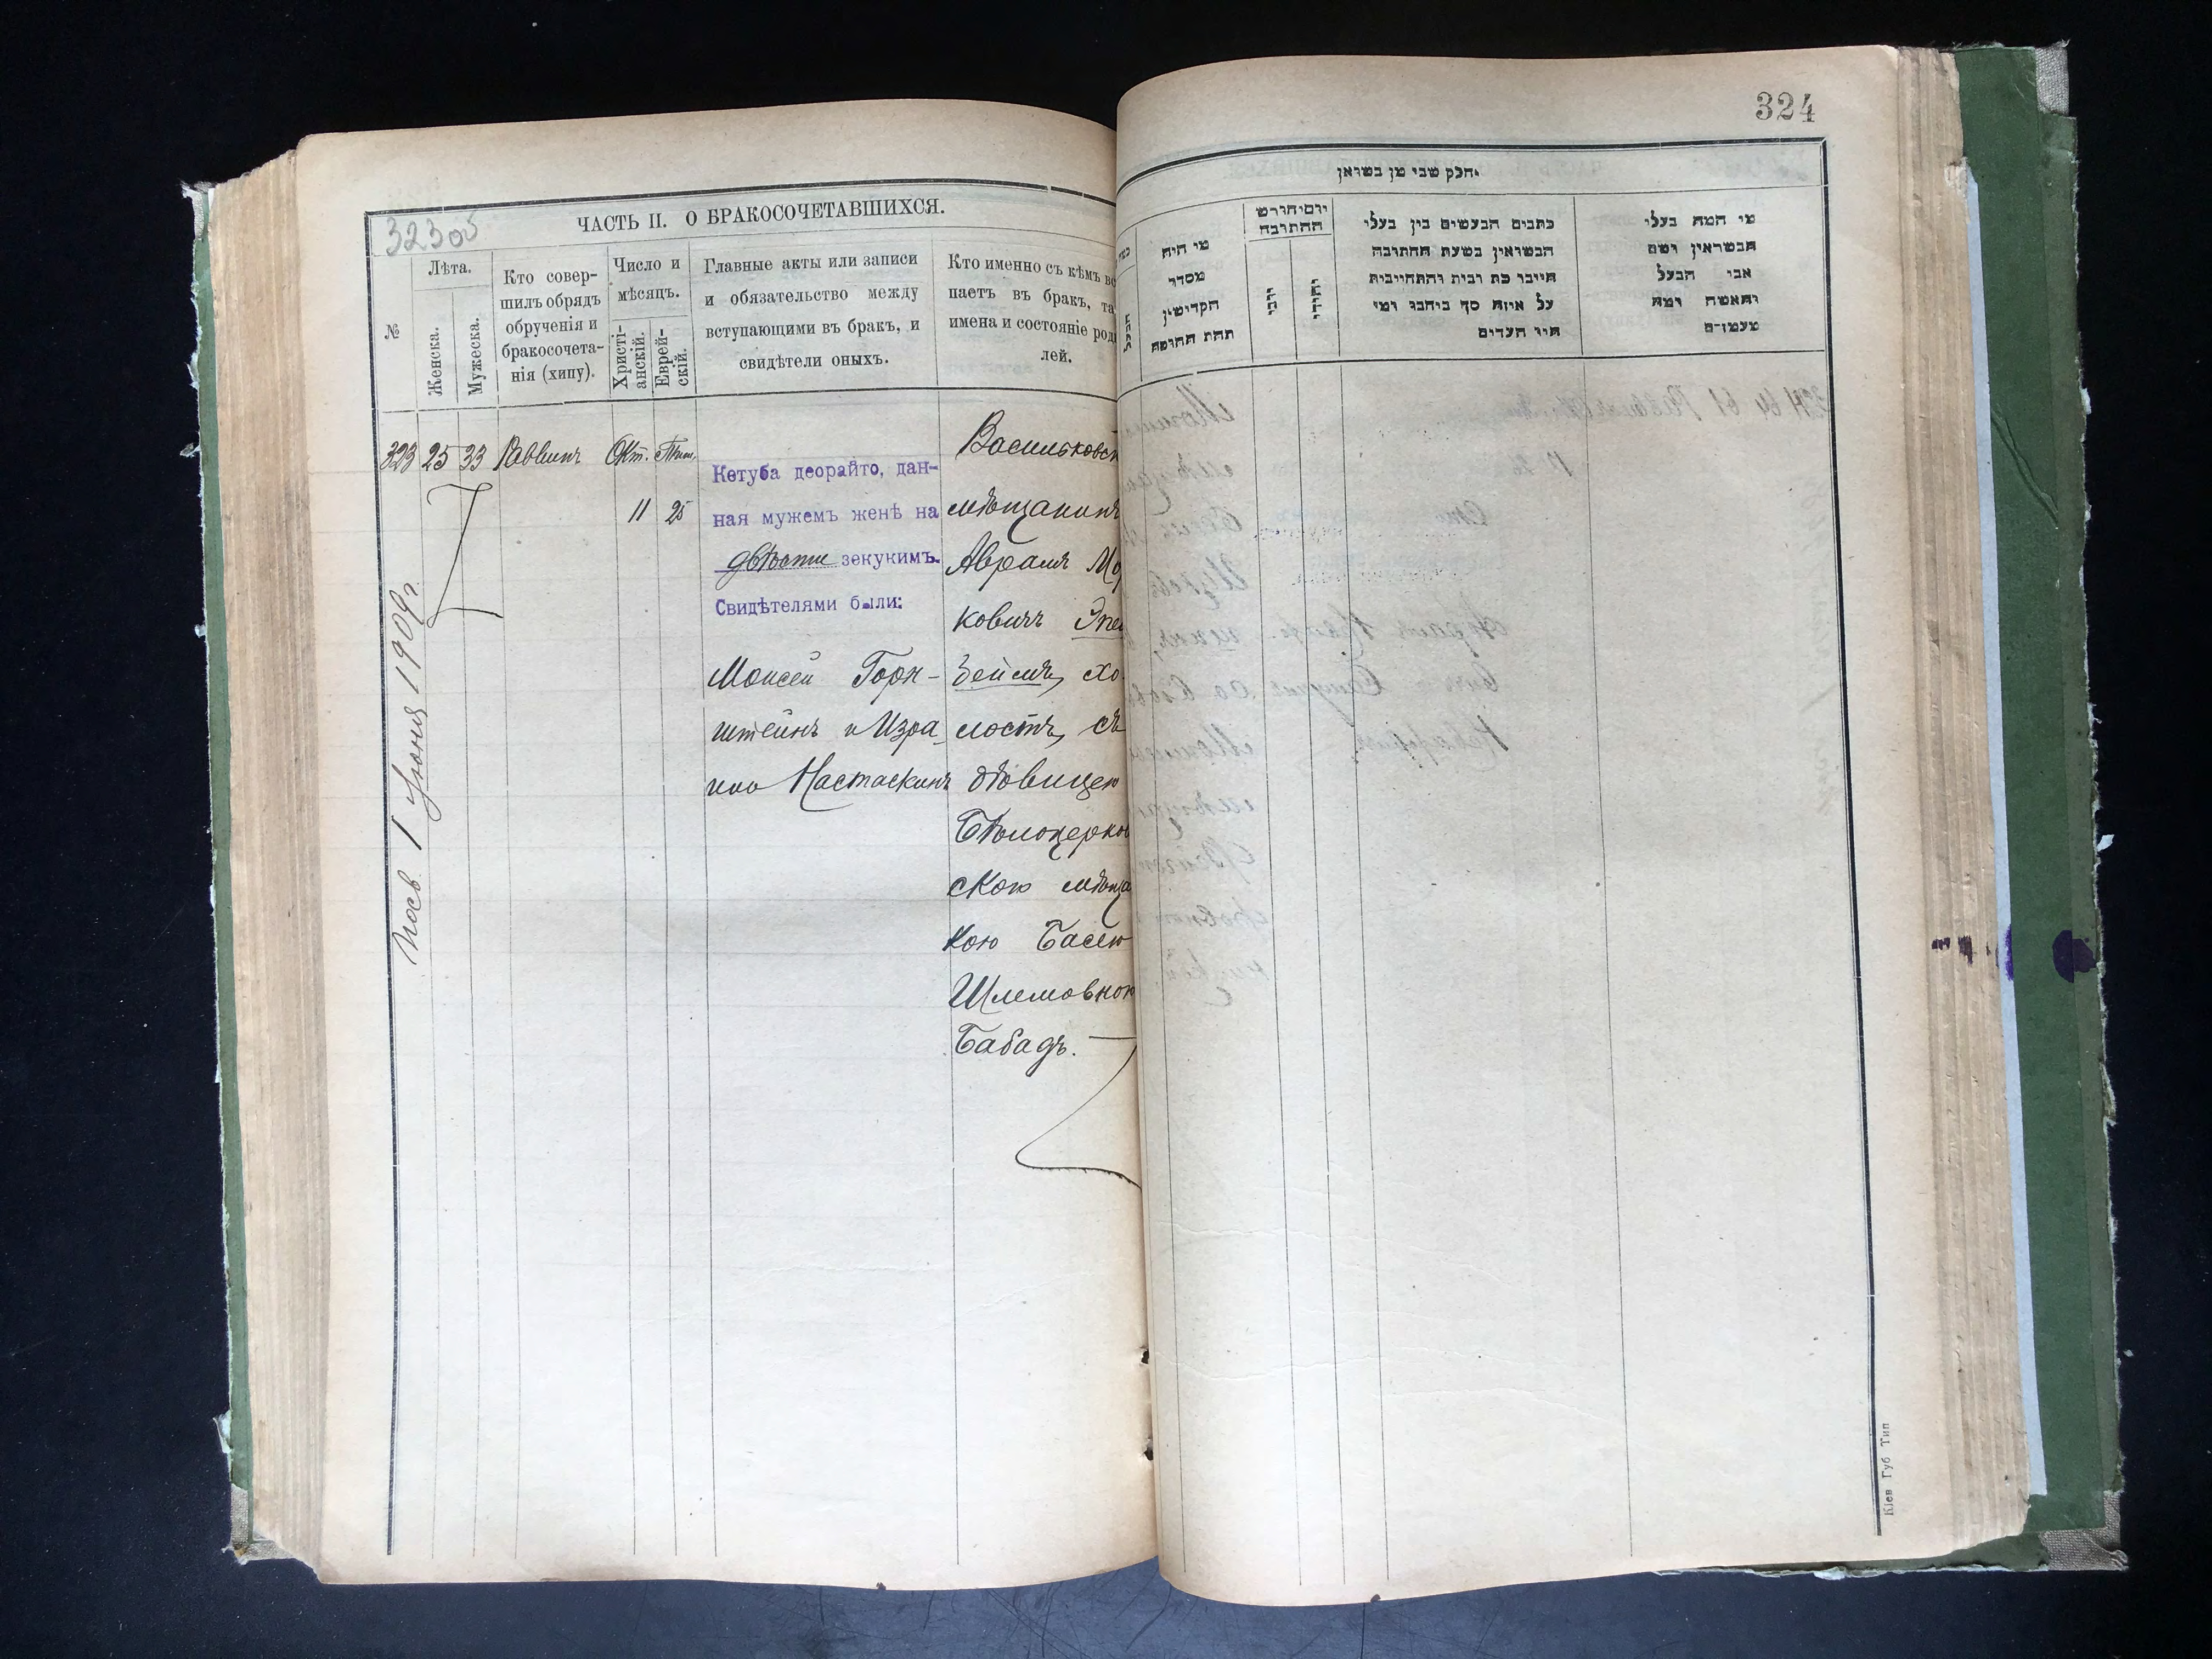 323об
ЧАСТЬ II. О БРАКОСОЧЕТАВШИХСЯ.
№
Лѣта.
Женска.
Мужеска.
Кто совер-
шилъ обрядъ
обрученія и
бракосочета-
нія (хипу).
Число и
мѣсяцъ.
Христі-
анскій.
Еврей-
скій.
Главные акты или записи
и обязательство между
вступающими въ бракъ, и
свидѣтели оныхъ.
Кто именно съ кѣмъ вс
паетъ въ бракъ, та
имена и состояніе род
лей.
323 25 33 Раввинъ Окт. Тиш.
11 25
Кетуба деорайто, дан-
ная мужемъ женѣ на
двѣсти зекукимъ.
Свидѣтелями были:
Моисей Горн-
штейнъ и Изра
иль Настаскинъ
Васильковск
мѣщанинъ
Аврамъ Мо
ковичъ Эпе
зеймъ, хо
лостъ, съ
дѣвицею
Бѣлоцерков
скою мѣща
кою Басею
Шлемовною
Бабадъ.
Посв. 1 Іюня 1909 г.
324
חלק שני מן נשואין
מי היה
מסדר
הקדישין
תחת החופה
יום וחודש
החתונה
יהודי
כתבים הנעשים בין בעלי
הנשואין בשעת החתונה
על איזה סך ביחבו ומי
היו העדים
מי המה בעלי
הנשואין ושם
אבי הבעל
והאשה ומה
Кіев Губ Тип